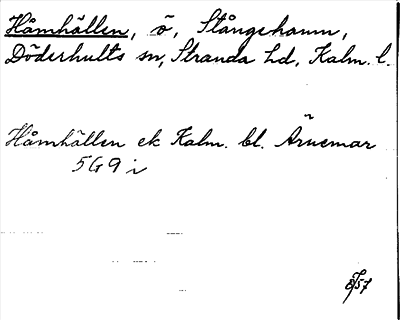 Håmhällen, ö, Stångehamn,
Döderhults sn, Stranda hd, Kalm. l.
Håmhällen ek Kalm. bl. Ärnemar
5G9i